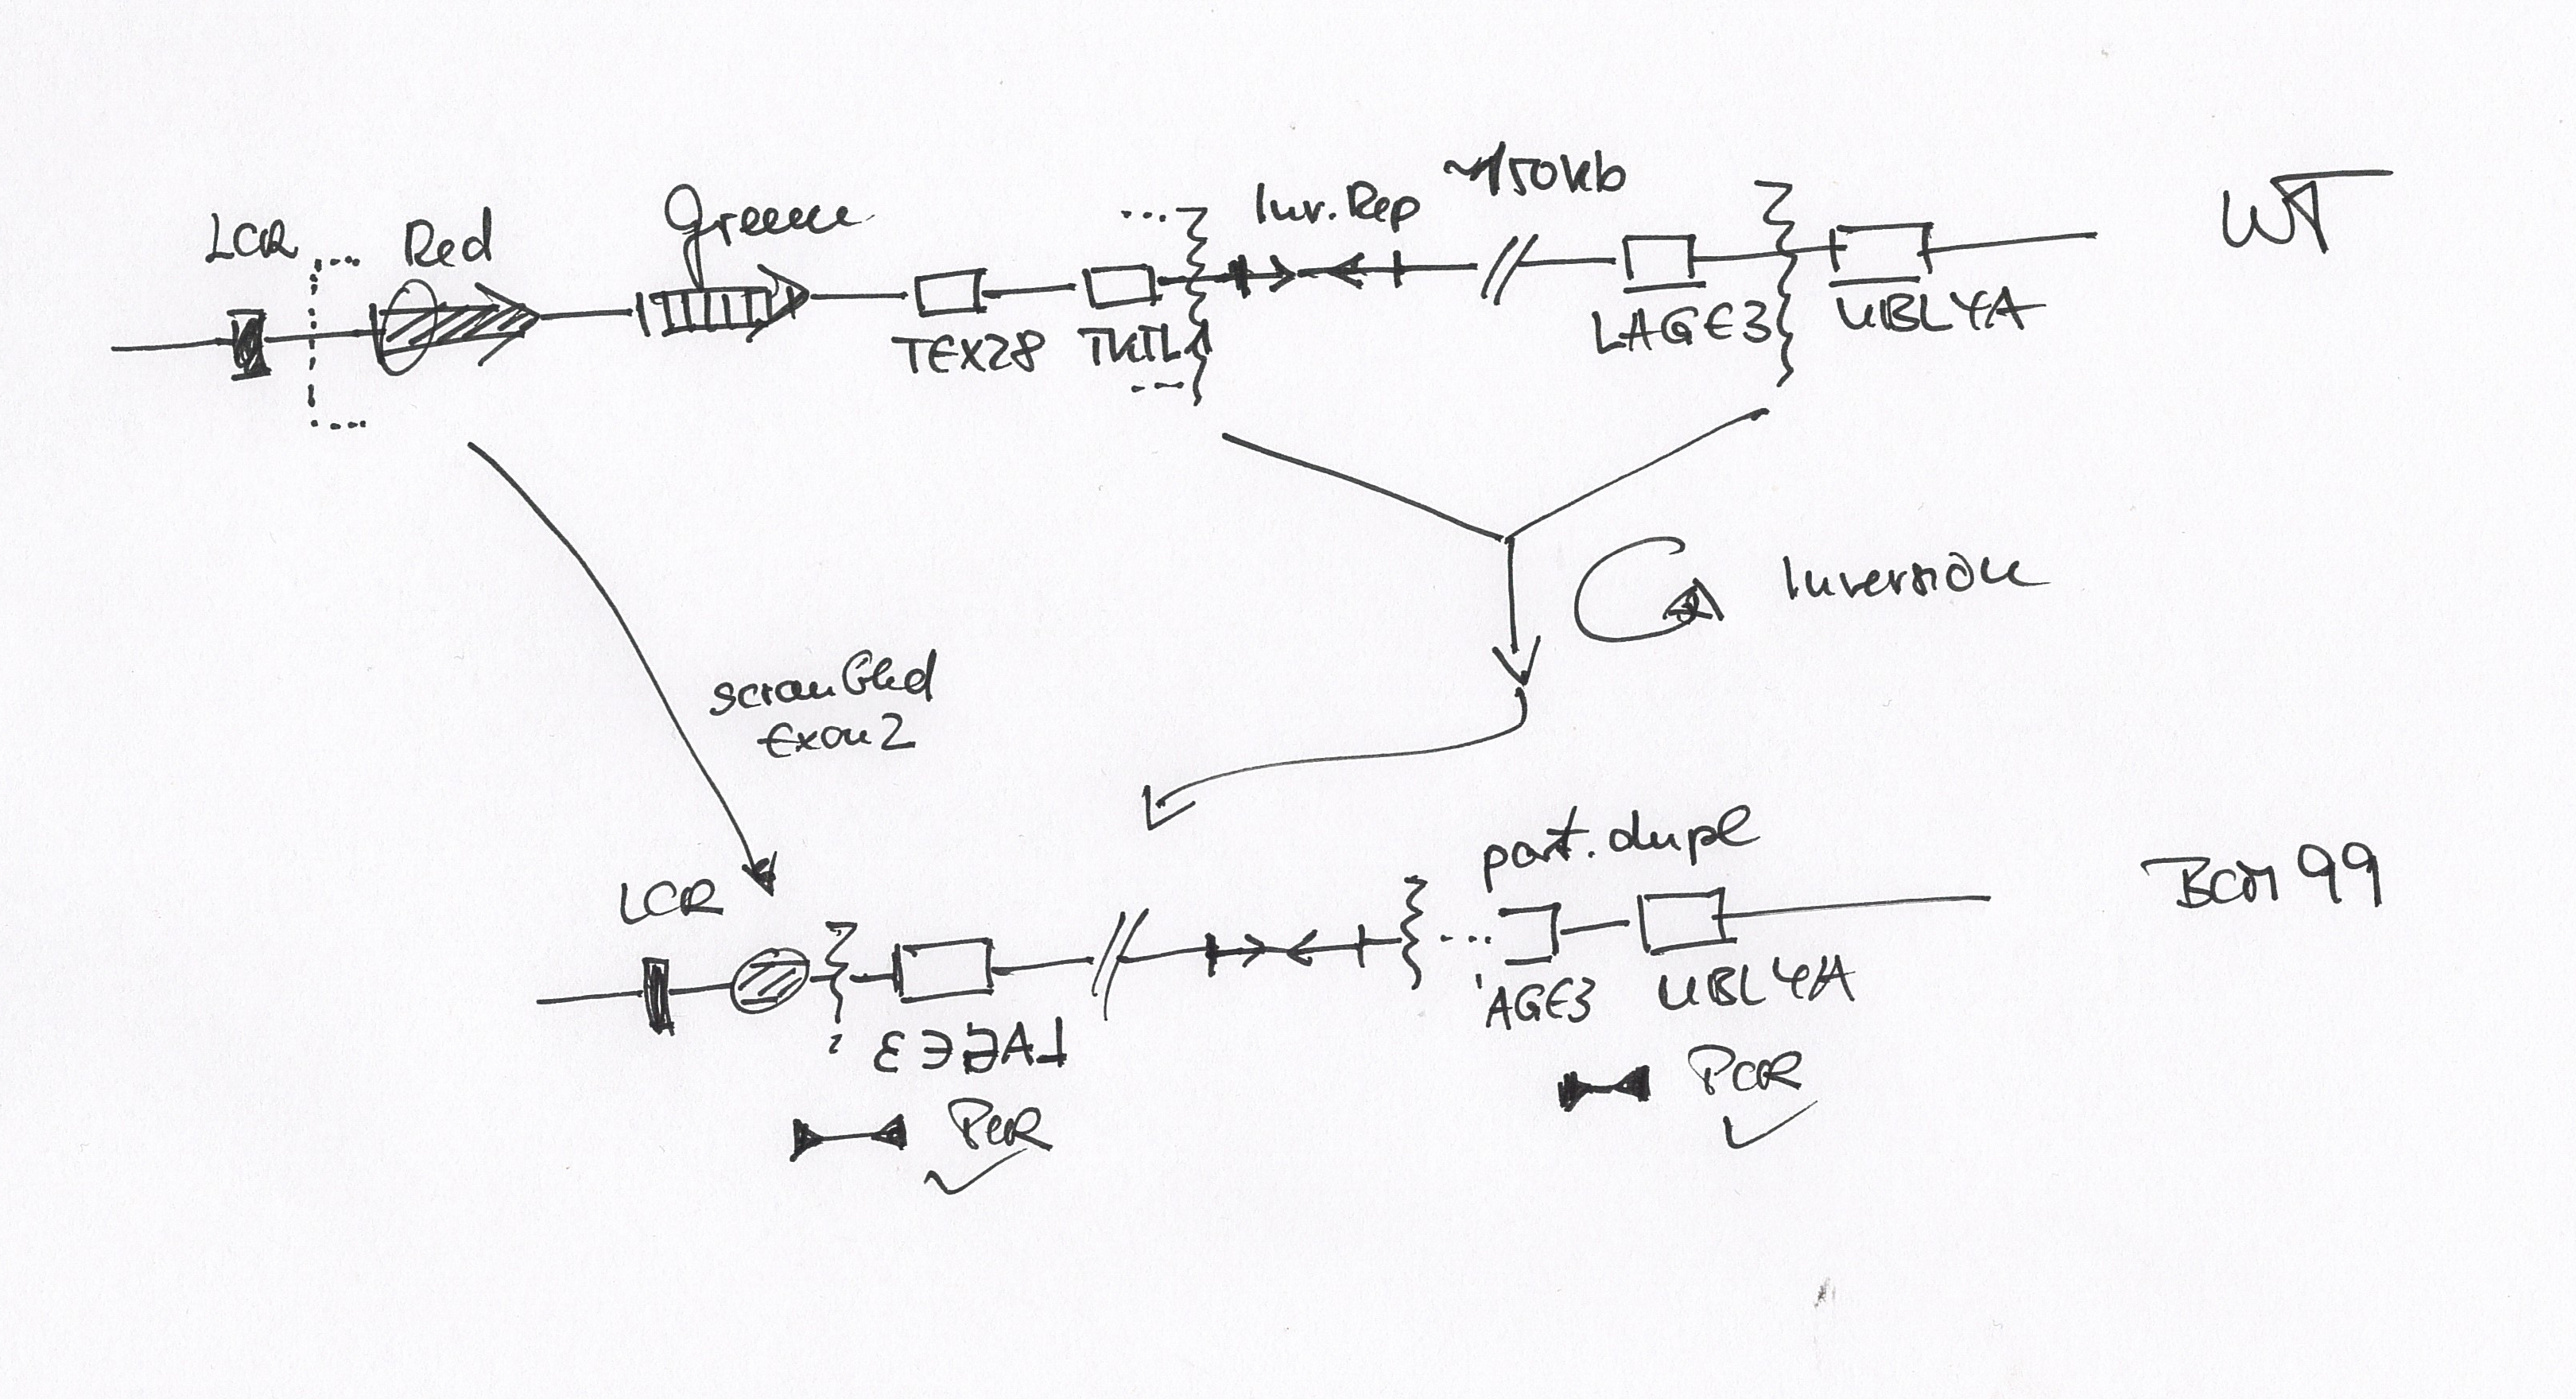 LCR Red Green ... Inv. Rep ~150kb WT
TEX28 TKTL1 LAGE3 UBL4A
Inversion
scrambled
Exon2
LCR part. dupl BCM 99
LAGE3 'AGE3 UBL4A
PCR PCR